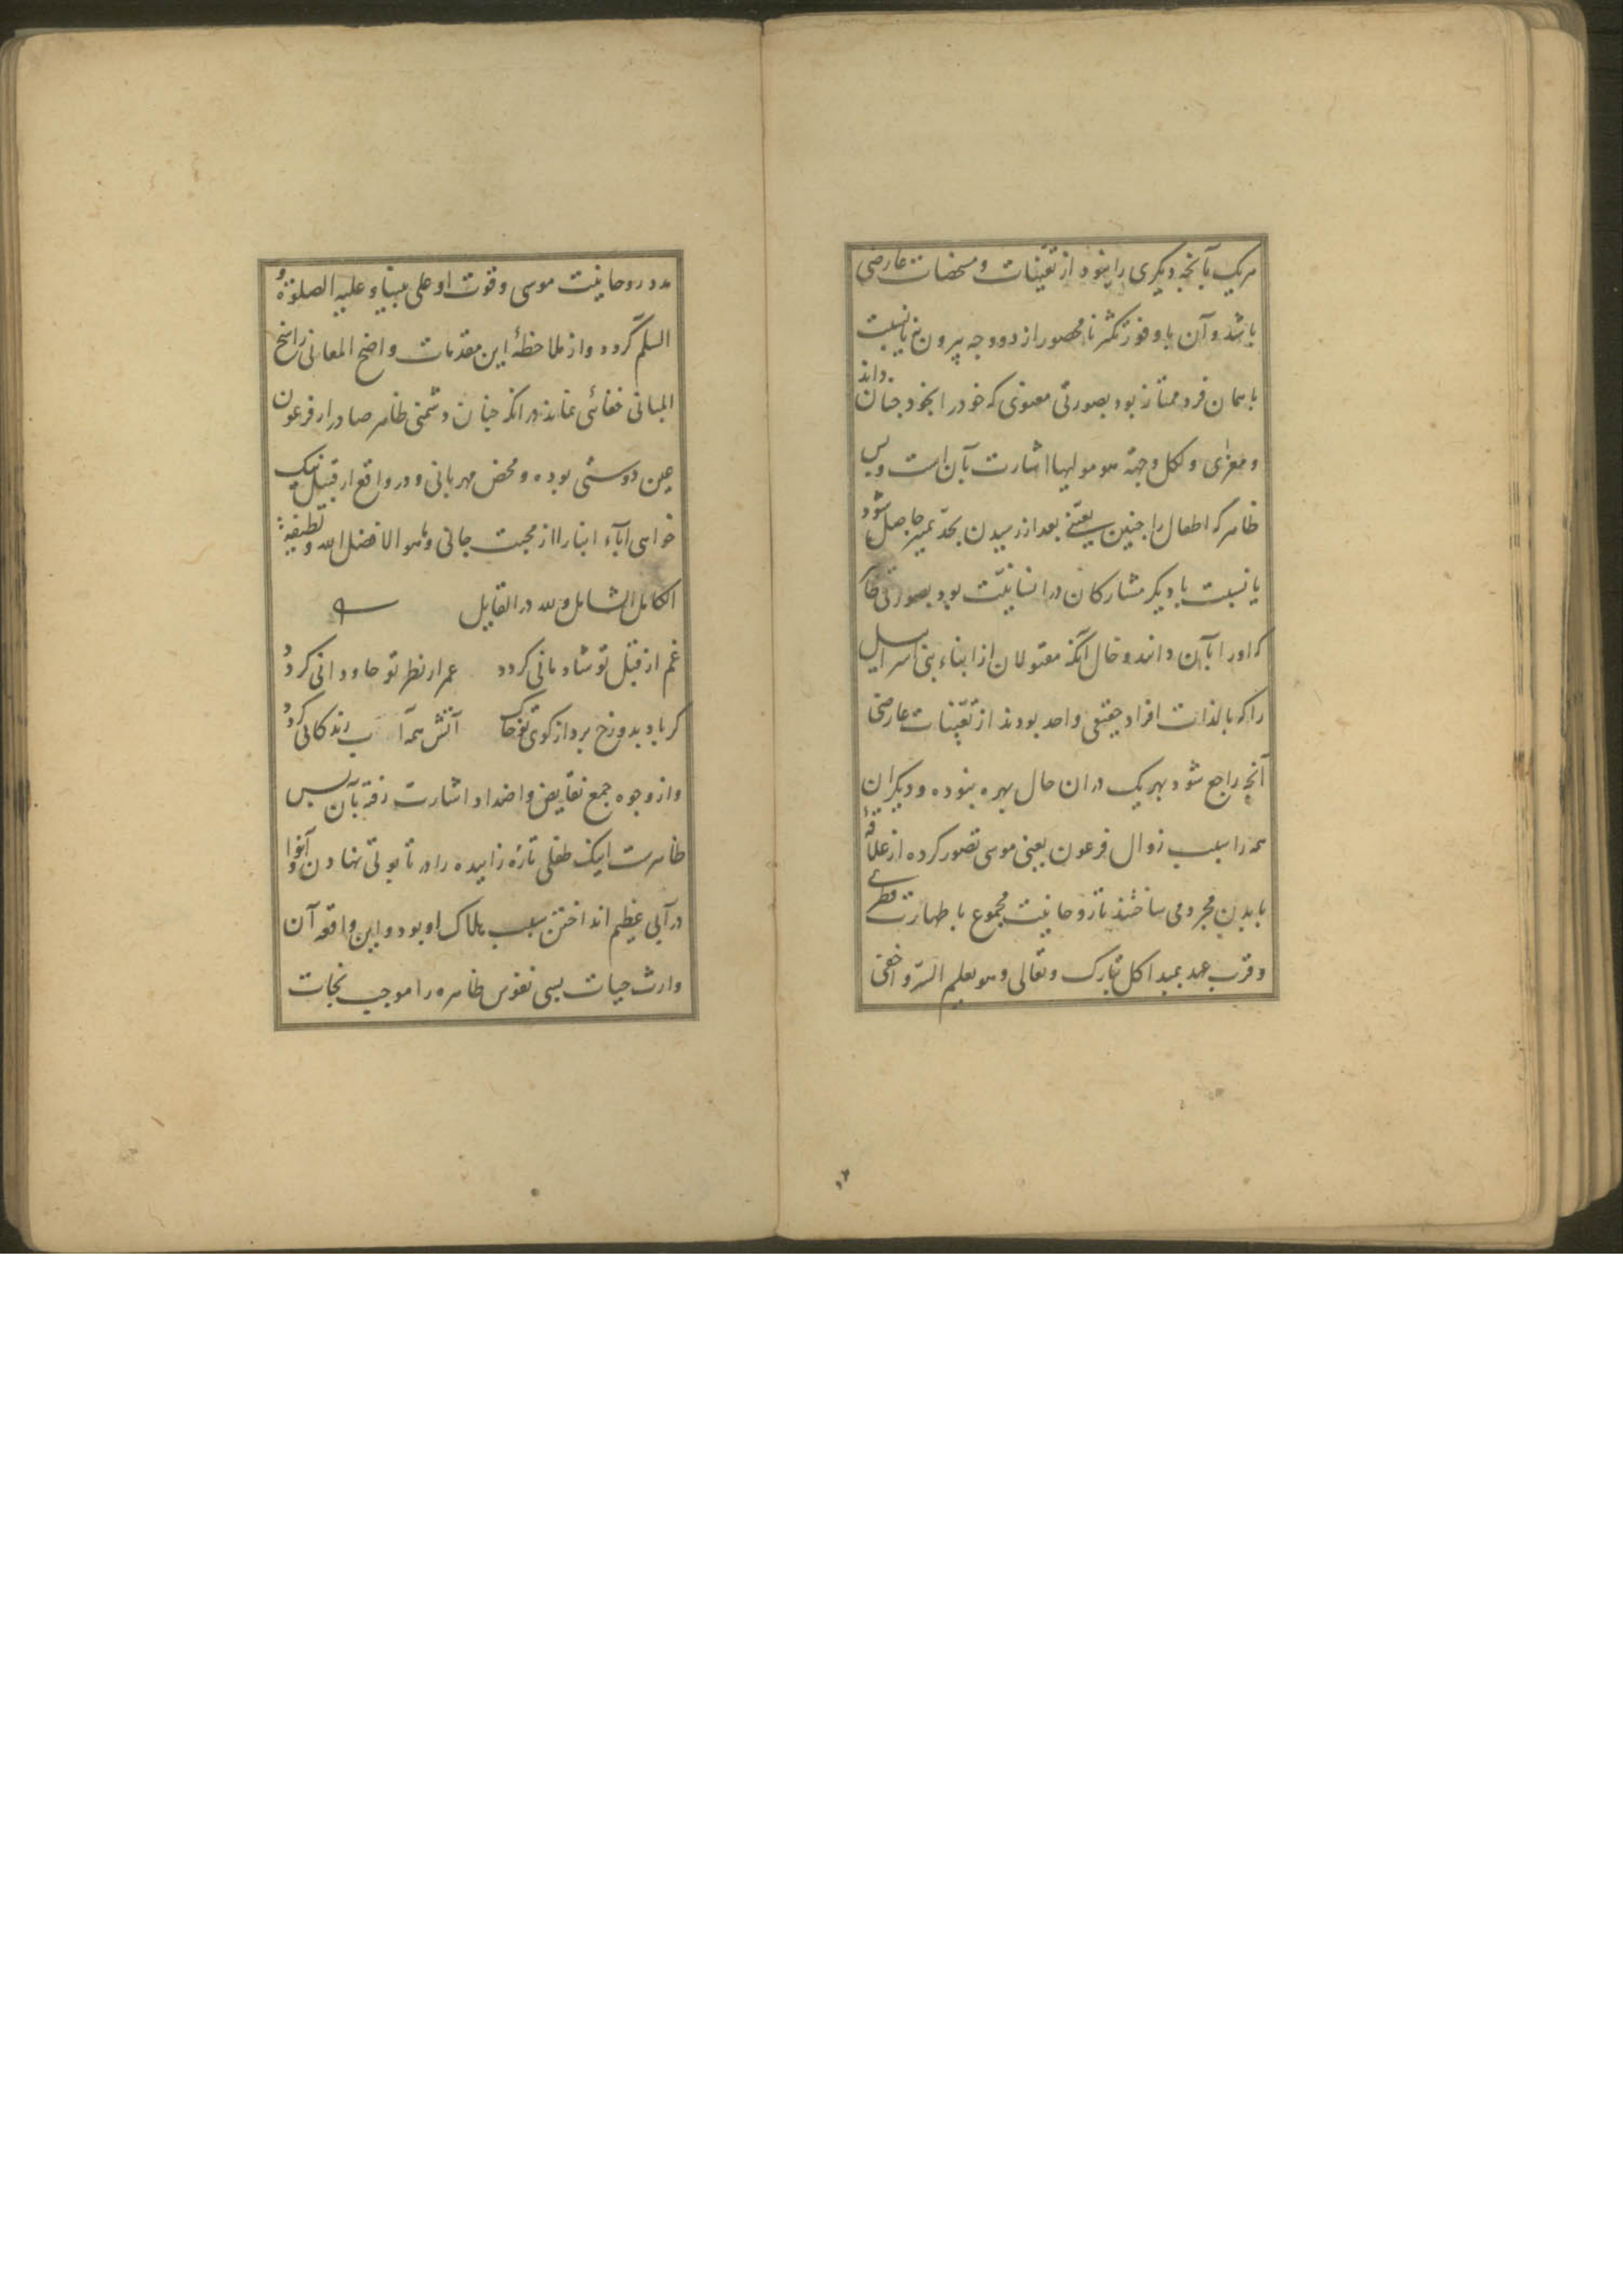 هریک بآنچه دیکری را نبود از تعینات و مشخصات عارضی
باشد و آن با وفور تکثر نامحصور از دو وجه بیرون نی یا نسبت
با همان فرد ممتاز بود بصورتی معنوی که خود را بخود چنان داند
و مغزی و لکل وجهة هو مولیها اشارت بآن است و بس
ظاهر که اطفال را چنین تعینی بعد از رسیدن بحد تمیز حاصل شود
یا نسبت با دیکر مشارکان در انسانیت بود بصورتی
که او را بآن دانند و حال آنکه مقتولان از ابناء بنی اسرائیل
را که بالذات افراد حقیقی واحد بودند از تعینات عارضی
آنچه راجع شود بهر یک در ان حال بهره نبوده و دیکران
همه را سبب زوال فرعون یعنی موسی تصور کرده از علاقهٔ
با بدن محرومی ساختند تا روحانیت مجموع با طهارت فطری
و قرب عهد بمبدا کل تبارک و تعالی وهو یعلم السر و اخفی
مدد روحانیت موسی و قوت او علی نبینا و علیه الصلوة و
السلم کردد و از ملاحظهٔ این مقدمات واضح المعانی راسخ
المبانی خفائی نماند در انکه چنان دشمنی ظاهر صادر از فرعون
عین دوستی بوده و محض مهربانی و در واقع از قبیل نیک
خواهی آباء ابنا را از محبت جانی وما هو الا فضل الله ولطیفه
الکامل الشامل ولله در القایل
غم از قبل تو شادمانی کردد عمر از نظر تو جاودانی کردد
کر باد بدوزخ برد از کوی تو خاک آتش همه آب زندکانی کردد
و از وجوه جمع نقایض و اضداد اشارت رفته بآن بس
ظاهرست اینک طفلی تازه زاییده را در تابوتی نهادن و آنرا
در آبی عظیم انداختن سبب هلاک او بود و این واقعه آن
وارث حیات بسی نفوس طاهره را موجب نجات